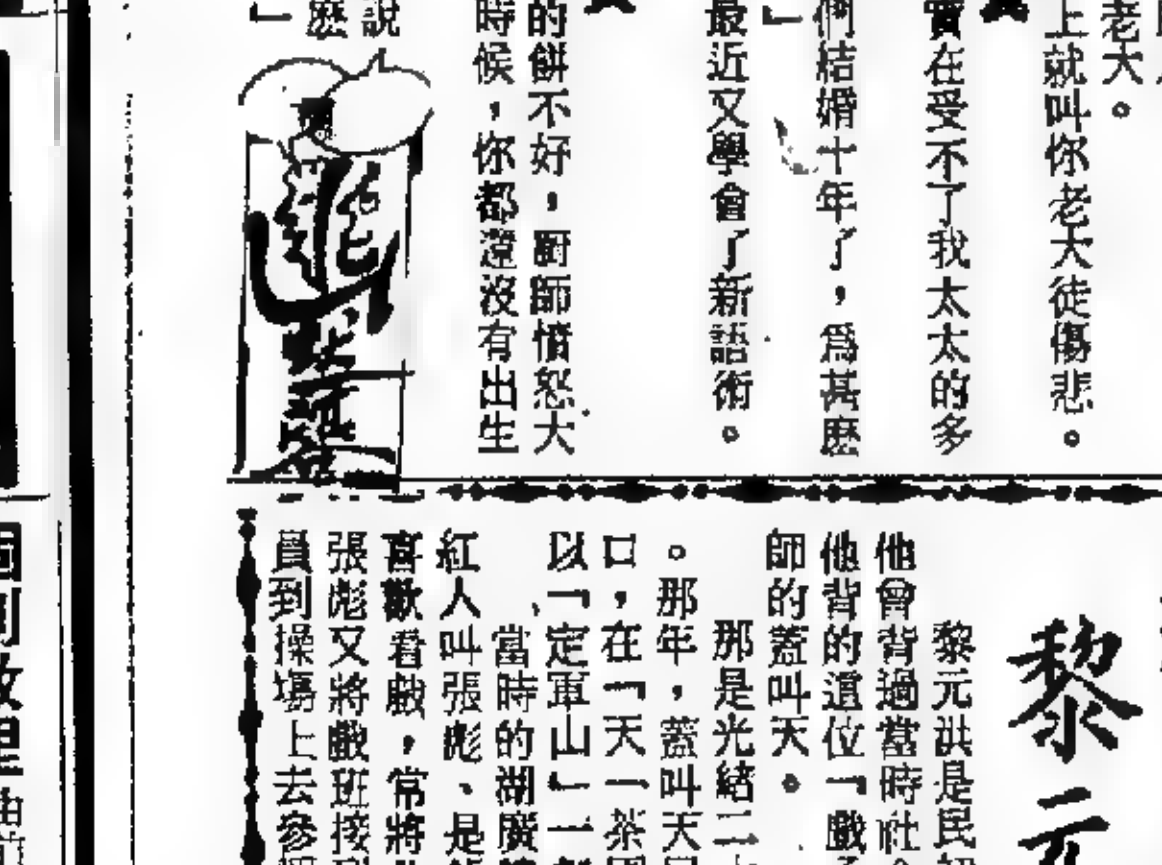 老大。
上就叫你老大徒傷悲。
實在受不了我太太的多
們結婚十年了，爲甚麽
」
最近又學會了新語術。
的餅不好，廚師憤怒大
時候，你都還沒有出生
說
麽
」
黎元
黎元洪是民
他曾背過當時社
他背的這位「戲
師的蓋叫天。
那是光緒二
。那年，蓋叫天
口，在「天一茶
以「定軍山」一
當時的湖廣
紅人叫張彪、是
喜歡看戲，常將
張彪又將戲班接
員到操場上去參